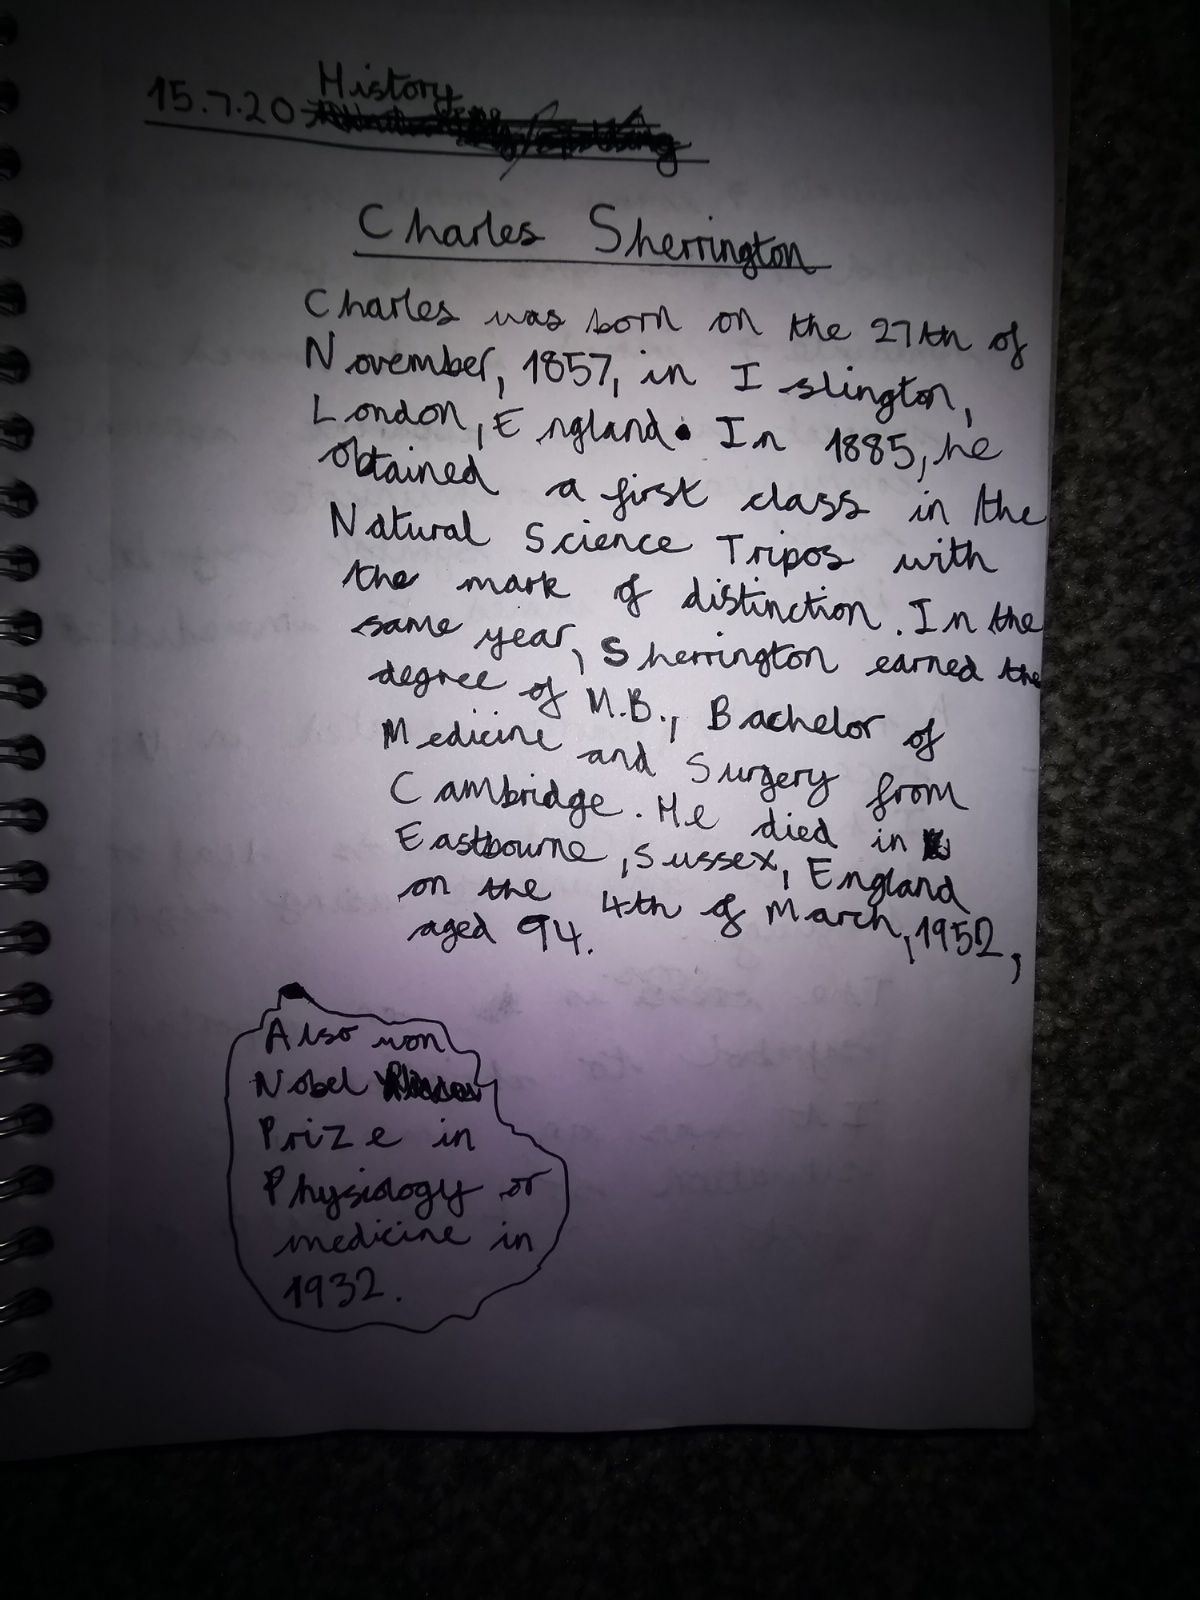 History
15.7.20
Charles Sherrington
Charles was born on the 27th of
November, 1857, in Islington,
London, England. In 1885, he
obtained a first class in the
Natural Science Tripos with
the mark of distinction. In the
same year, Sherrington earned the
degree of M.B., Bachelor of
Medicine and Surgery from
Cambridge. He died in
Eastbourne, Sussex, England
on the 4th of March, 1952,
aged 94.
Also won
Nobel
Prize in
Physiology or
medicine in
1932.